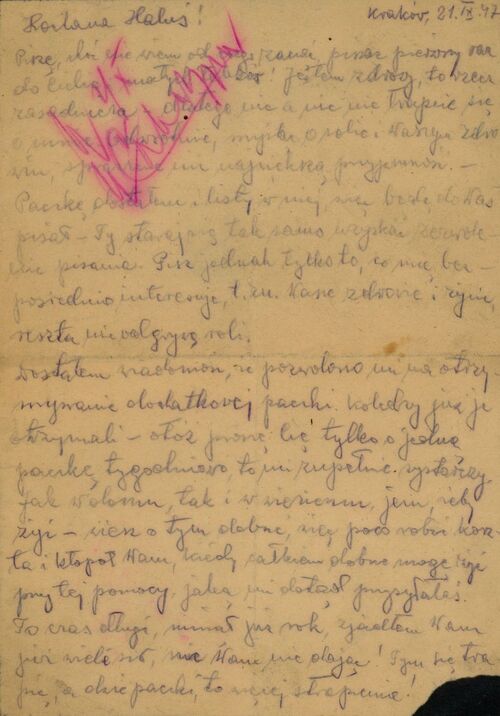 Kochana Haluś!
Kraków, 21.IX.47
Piszę, choć nie wiem od czego zacząć, pisać pierwszy raz
do Ciebie Jestem zdrowy, to rzecz
zasadnicza dlatego nie a nic nie trapcie się
o mnie myśl o sobie i Waszym zdro
wiu, sprawicie mi największą przyjemność. —
Paczkę dostałem i listy w niej, więc będę do Was
pisał — Ty staraj się tak samo uzyskać zezwole-
nie pisania. Pisz jednak tylko to, co mię bez-
pośrednio interesuje, t. zn. Wasze zdrowie i życie,
reszta nie odgrywa roli.
Dostałem wiadomość, że pozwolono mi na otrzy-
mywanie dodatkowej paczki. Koledzy już je
otrzymali — otóż proszę Cię tylko o jedną
paczkę tygodniowo, to mi zupełnie wystarczy.
Jak w domu, tak i w więzieniu, jem, żeby
żyć — wiesz o tym dobrze, więc poco robić kosz-
ta i kłopot Wam, kiedy całkiem dobrze mogę żyć
przy tej pomocy, jaką mi dotąd przysyłałaś.
To czas długi, minął już rok, zjadłem Wam
już wiele sił, nic Wam nie dając! Tym się tra-
pię, a dwie paczki, to więcej strapienia!